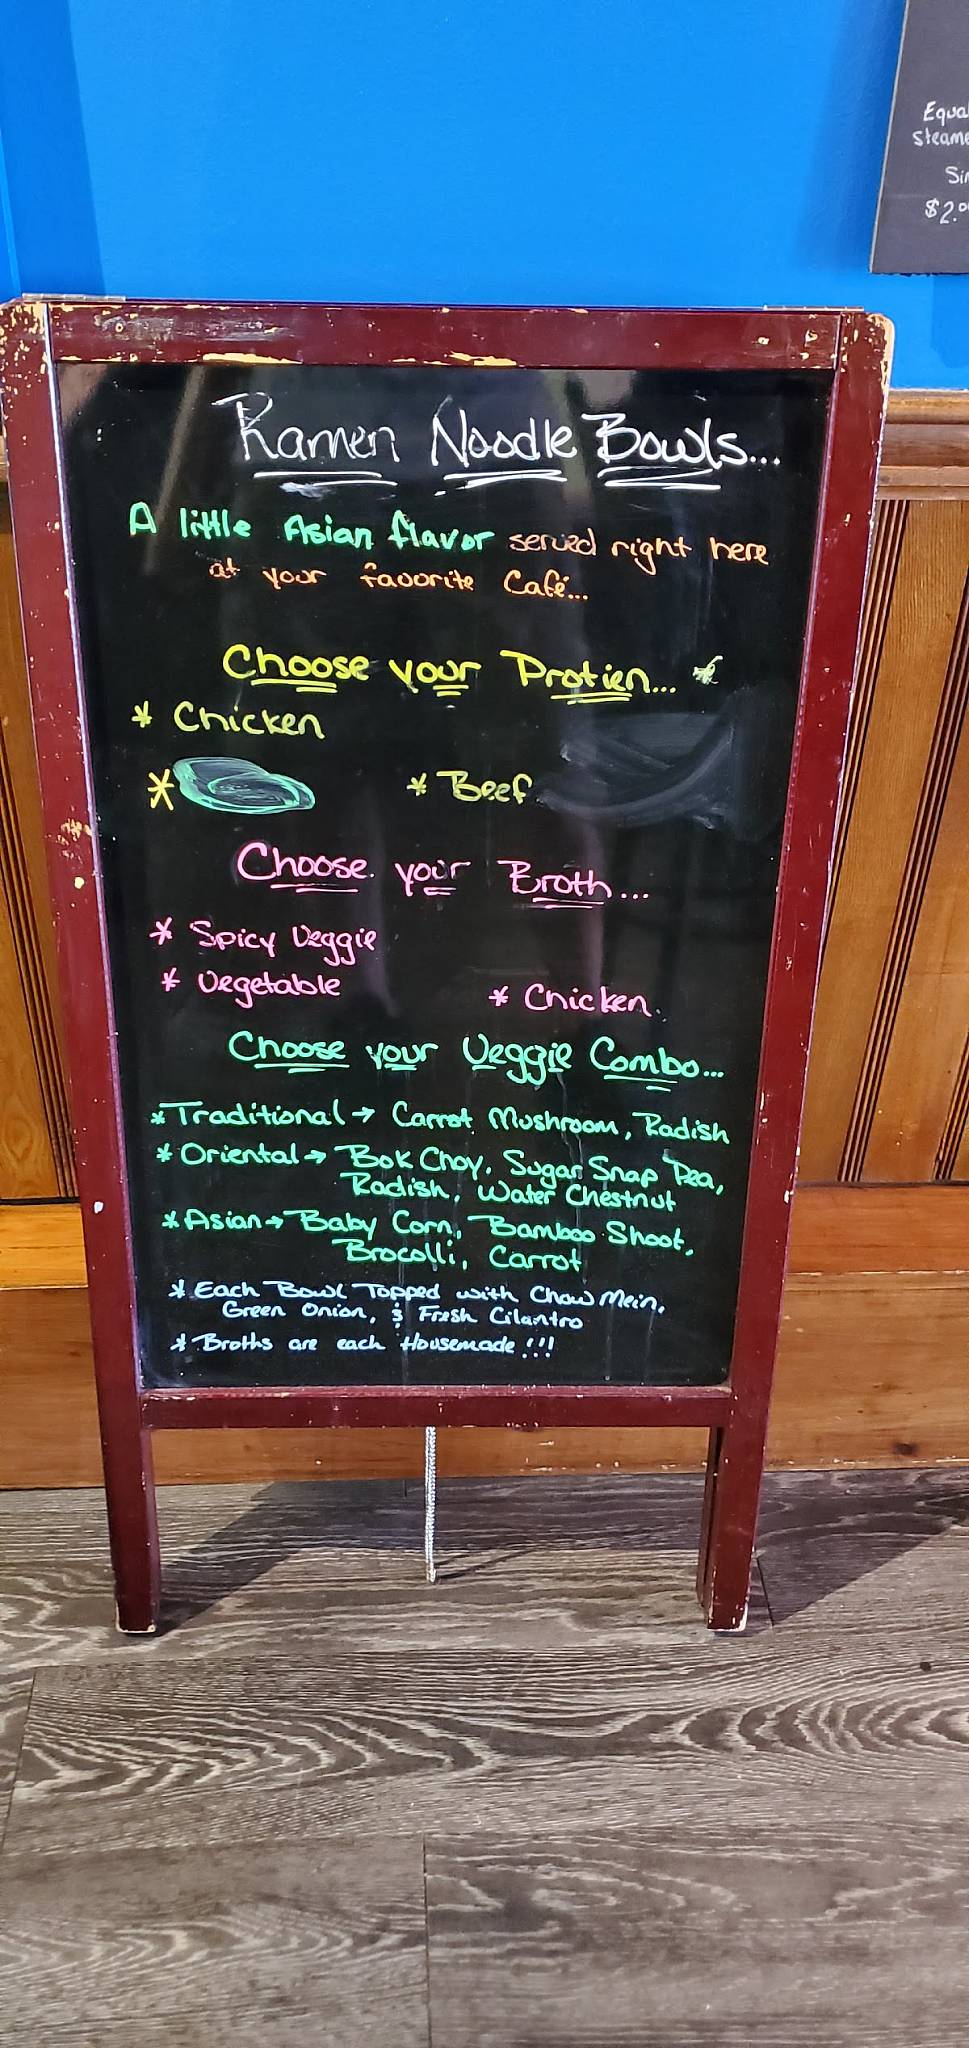 Equa
steame
Sin
$2.00
Ramen Noodle Bowls...
A little Asian flavor served right here
at your favorite Café...
Choose your Protien...
* Chicken
*
* Beef
Choose your Broth...
* Spicy Veggie
* Vegetable
* Chicken
Choose your Veggie Combo...
*Traditional → Carrot Mushroom, Radish
* Oriental → Bok Choy, Sugar Snap Pea,
Radish, Water Chestnut
*Asian → Baby Corn, Bamboo Shoot,
Brocolli, Carrot
* Each Bowl Topped with Chow Mein,
Green Onion, & Fresh Cilantro
* Broths are each Housemade !!!